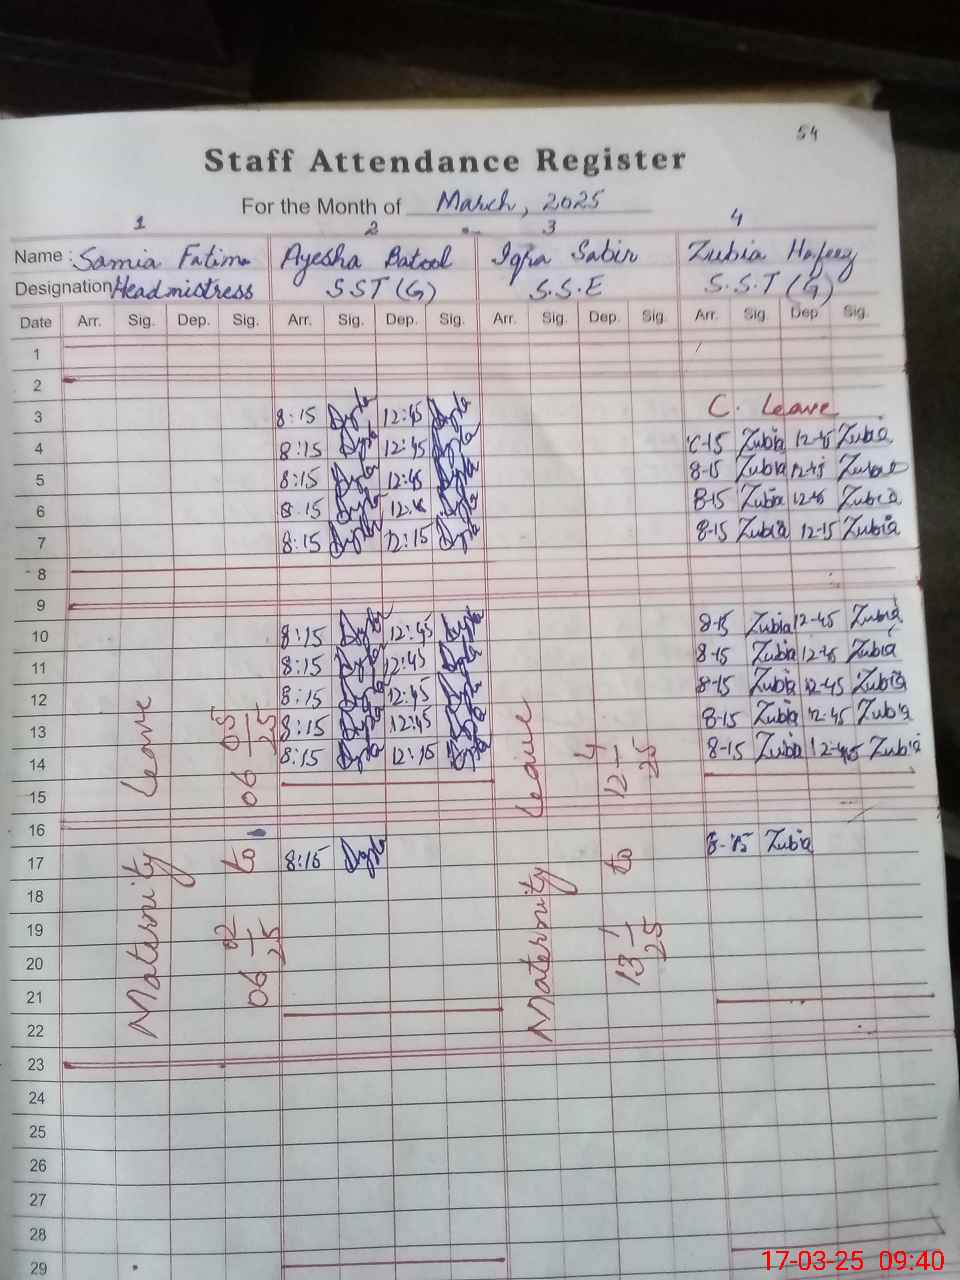 54
Staff Attendance Register
For the Month of March, 2025
1 2 3 4
Name : Samia Fatima Ayesha Batool Iqra Sabir Zubia Hafeez
Designation Headmistress SST (G) S.S.E S.S.T (G)
Date Arr. Sig. Dep. Sig. Arr. Sig. Dep. Sig. Arr. Sig. Dep. Sig. Arr. Sig. Dep. Sig.
1
2
3 8:15 12:45 C. Leave
4 8:15 12:45 Zubia 12-45 Zubia
5 8:15 12:45 8-15 Zubia 12-45
6 8:15 8-15 Zubia Zubia
7 8:15 12:15 8-15 Zubia 12-15 Zubia
8
9
10 8:15 12:45 8-15 Zubia 12-45 Zubia
11 8:15 12:45 8-15 Zubia Zubia
12 8:15 12:45 8-15 Zubia 12-45 Zubia
13 8:15 12:45 8-15 Zubia 12-45 Zubia
14 8:15 8-15 Zubia Zubia
15
16
17 8:15 8-15 Zubia
18
19
20
21
22
23
24
25
26
27
28
29
Maternity Leave
06 02 25 to 06 05 25
Maternity Leave
13 1 25 to 12 4 25
17-03-25 09:40